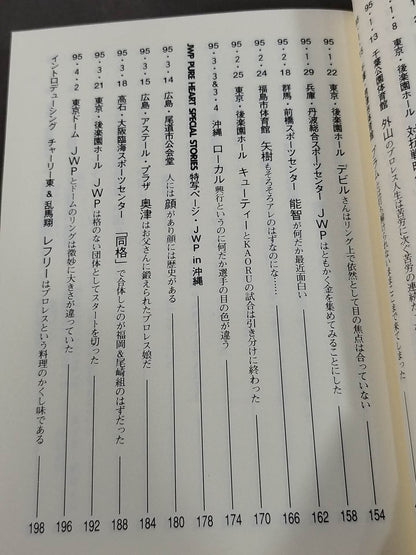 ・1・8 後楽園ホール 対抗戦
・1・13 千葉公園体育館 外山のプロレス人生は苦労に次ぐ苦労の連続だ
95・1・22 東京・後楽園ホール デビルさんはリング上で依然として目の焦点は合っていない 154
95・1・29 兵庫・丹波総合スポーツセンター JWPはともかく金を集めてみることにした 158
95・2・18 群馬・前橋スポーツセンター 能智が何だか最近面白い 162
95・2・24 福島市体育館 矢樹もそろそろアレのはずなのにな…… 166
95・2・25 東京・後楽園ホール キューティーとKAORUの試合は引き分けに終わった 170
95・3・3&3・4 沖縄 ローカル興行というのに何だか選手の目の色が違う 174
JWP PURE HEART SPECIAL STORIES 特写ページ・JWP in 沖縄 178
95・3・14 広島・尾道市公会堂 人には顔があり顔には歴史がある 180
95・3・15 広島・アステール・プラザ 奥津はお父さんに鍛えられたプロレス娘だ 184
95・3・18 高石・大阪臨海スポーツセンター 「同格」で合体したのが福岡&尾崎組のはずだった 188
95・3・21 東京・後楽園ホール JWPは格のない団体としてスタートを切った 192
95・4・2 東京ドーム JWPとドームのリングは微妙に大きさが違っていた 196
イントロデューシング チャーリー東&乱馬翔 レフリーはプロレスという料理のかくし味である 198